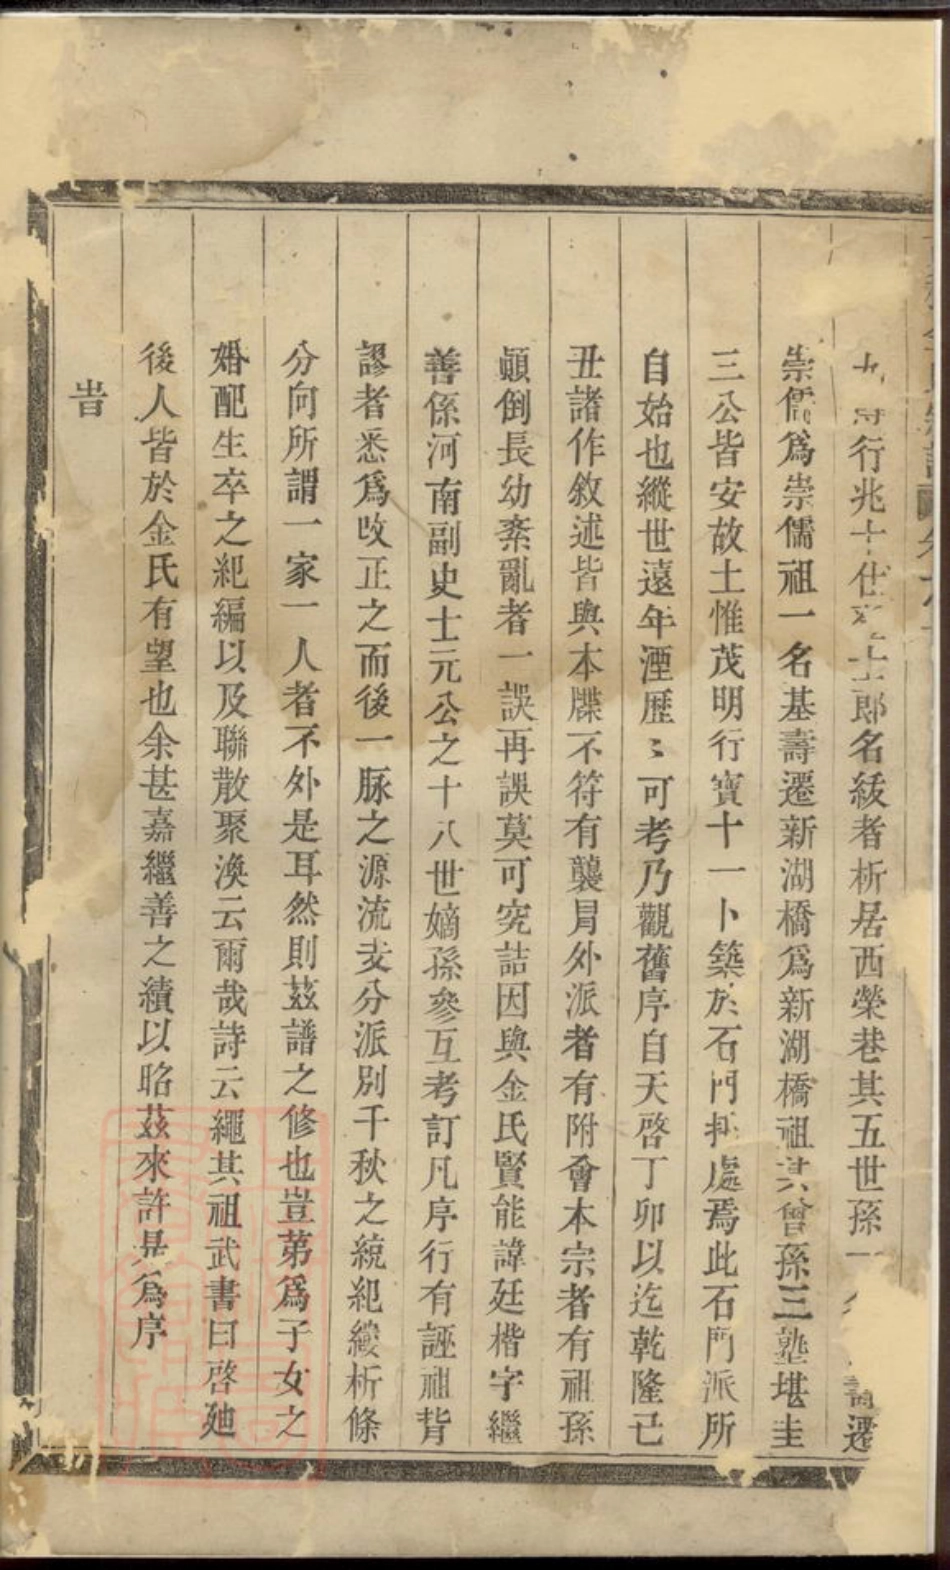 行兆十仕郎名紱者析居西榮巷其五世孫一遷
崇儒爲崇儒祖一名基壽遷新湖橋爲新湖橋祖其曾孫三塾堪圭
三公皆安故土惟茂明行寶十一卜築於石門拆處焉此石門派所
自始也縱世遠年湮歷〻可考乃觀舊序自天啓丁卯以迄乾隆己
丑諸作敘述皆與本牒不符有襲冐外派者有附會本宗者有祖孫
顚倒長幼紊亂者一誤再誤莫可究詰因與金氏賢能諱廷楷字繼
善係河南副史士元公之十八世嫡孫參互考訂凡序行有誣祖背
謬者悉爲改正之而後一脉之源流支分派別千秋之統紀縷析條
分向所謂一家一人者不外是耳然則茲譜之修也豈第爲子女之
婚配生卒之紀編以及聯散聚渙云爾哉詩云繩其祖武書曰啓廸
後人皆於金氏有望也余甚嘉繼善之續以昭茲來許是爲序
旹